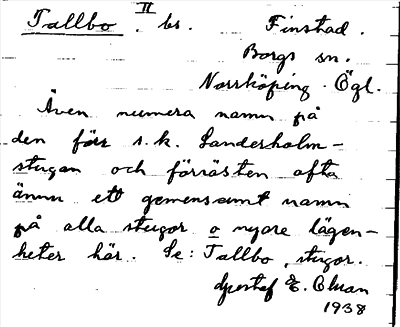 Tallbo. II bs. Finstad.
Borgs sn.
Norrköping. Ögl.
Även numera namn på
den förr s.k. Sanderholm-
stugan och förrästen ofta
ännu ett gemensamt namn
på alla stugor o nyare lägen-
heter här. Se: Tallbo, stugor.
Gustaf E. Oluan
1938